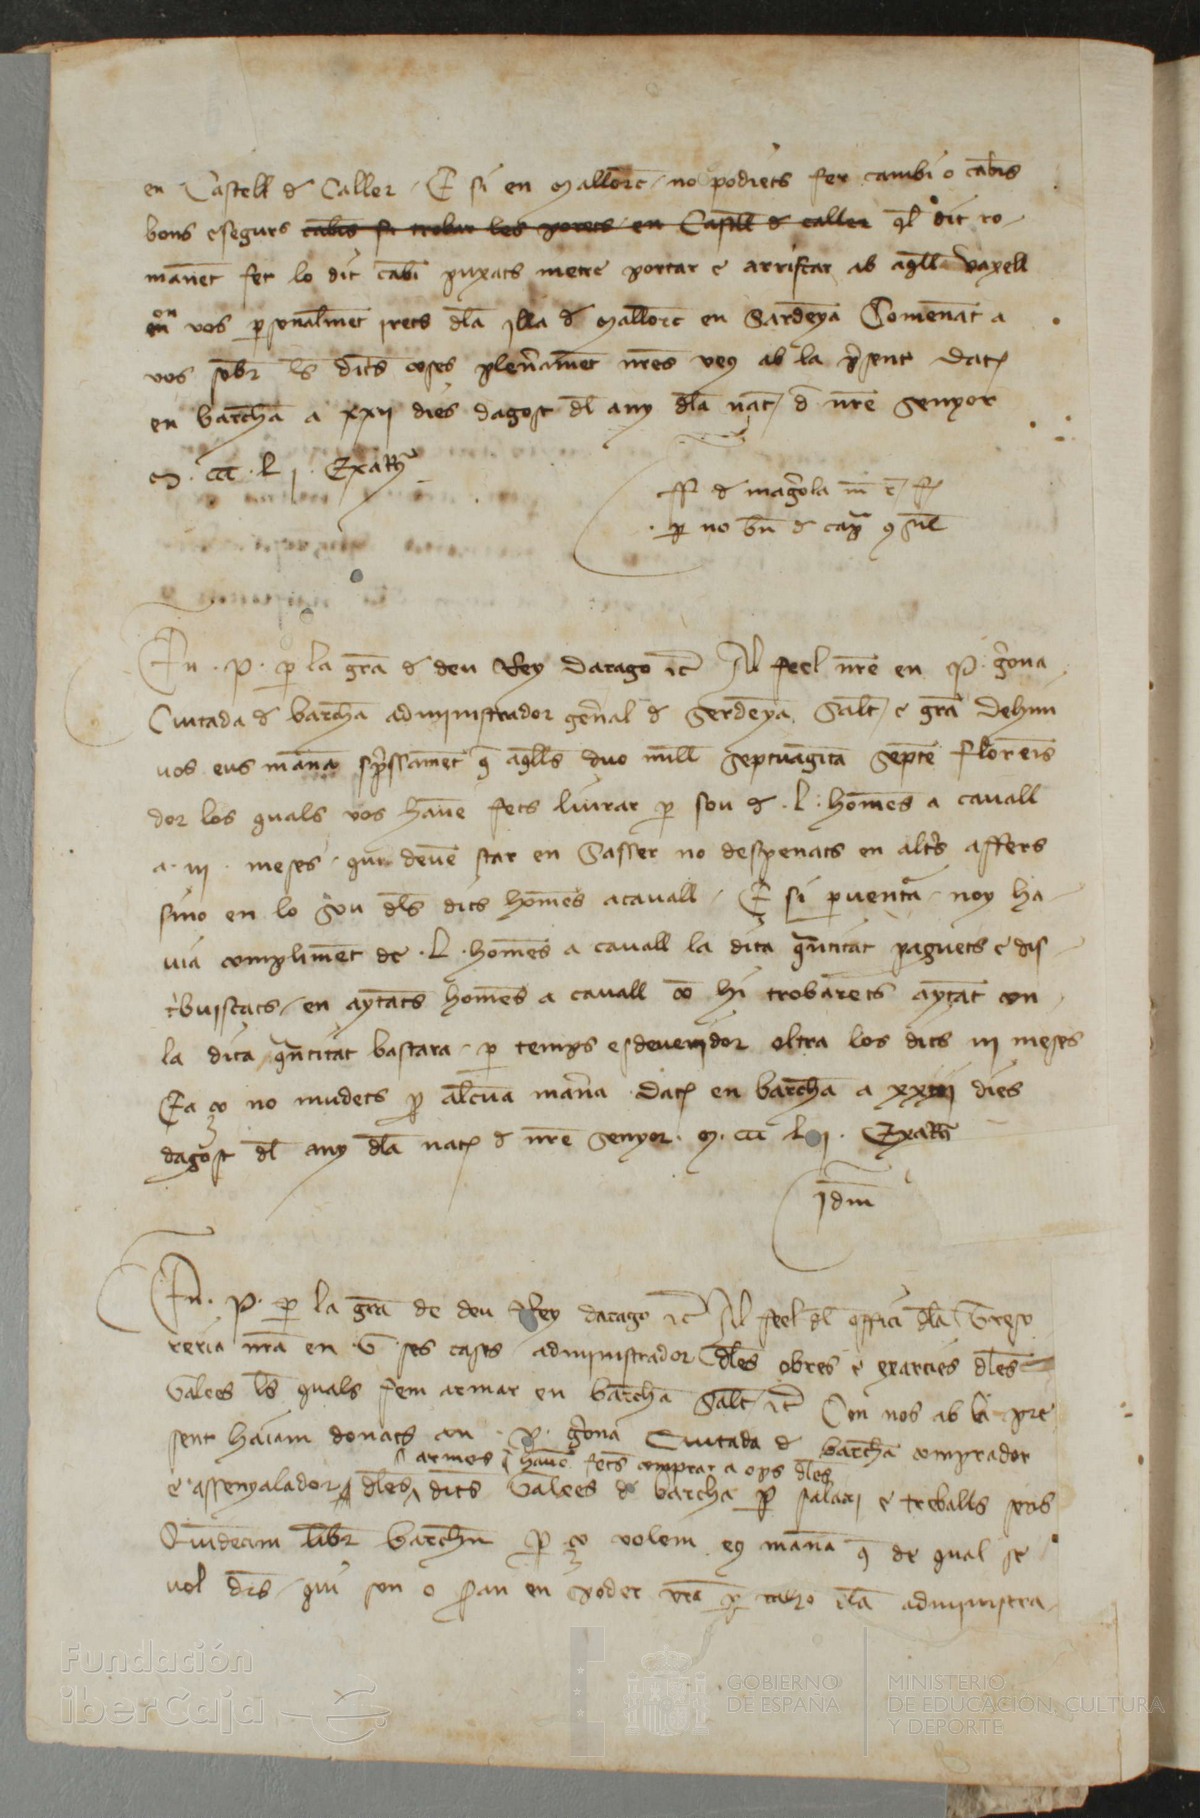 en Castell de Caller E si en Mallorc no podiets fer cambi o cabis
bons e segurs cabis si trobar les porets en Castell de caller dit ro
manent fet lo dit cabi puxats metre portar e arriscar ab aqll vaxell
on vos psonalmet irets dla illa de Mallorc en Sardeya Comenant a
vos sobr ls dits coses plenamet nres veus ab la psent Dat
en barchа a xxii dies dagost dl any dla nat d nre Senyor
M ccc L i Exatr
ff de magola m
p no bn de cap
En P p la gra de deu Rey Darago etc Al feel nre en P gona
Ciutada de barcha administrador genal de Serdeya Salt e gra Dehim
vos eus mana spssamet q aqlls duo mill septuaginta septe florens
dor los quals vos have fets liurar p sou de L homes a cavall
a iii meses qui deve star en Sasser no despenats en altrs affers
sino en lo sou dls dits homes a cavall E si p ventа noy ha
via compliment de L homes a cavall la dita qntitat paguets e dis
tbuiscats en aytats homes a cavall co hi trobarets aytat con
la dita qntitat bastara p temps esdevenidor oltra los dits iii meses
Ea ço no mudets p alcua mana Dat en barcha a dies
dagost dl any dla nat de nre Senyor M ccc L i Exatr
Idm
En P p la gra de deu Rey darago etc Al feel dl offici dla treso
reria nra en ses cases administrador dles obres e exarcies dles
Galees ls quals fem armar en barcha Salt etc Con nos ab la pre
sent haiam donats an P gona Ciutada de barcha comprador
armes q have fets comprar a ops dles
e assenyalador dles dits Galees de barcha p salari e treballs seus
Quindecim libr barchn p ço volem eus mana q de qual se
vol dns qui son o sran en poder vra p raho dla administra
Fundación
iberCaja
GOBIERNO
DE ESPAÑA
MINISTERIO
DE EDUCACIÓN, CULTURA
Y DEPORTE